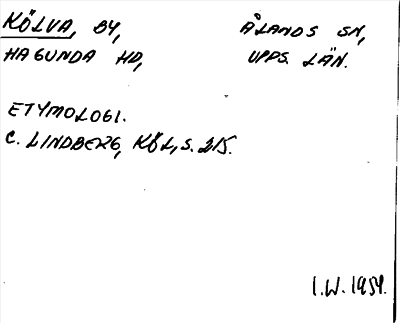 KÖLVA, BY, ÅLANDS SN,
HAGUNDA HD, UPPS. LÄN.
ETYMOLOGI.
C. LINDBERG, KÖL, S. 215.
I.W. 1959.